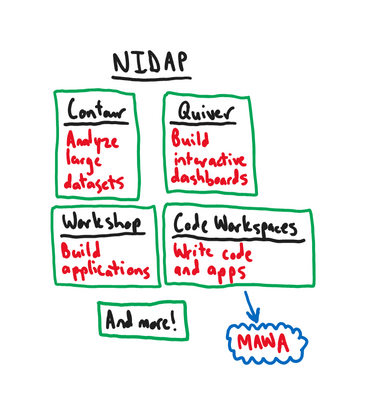 NIDAP
Contour
Analyze
large
datasets
Quiver
Build
interactive
dashboards
Workshop
Build
applications
Code Workspaces
Write code
and apps
And more!
MAWA